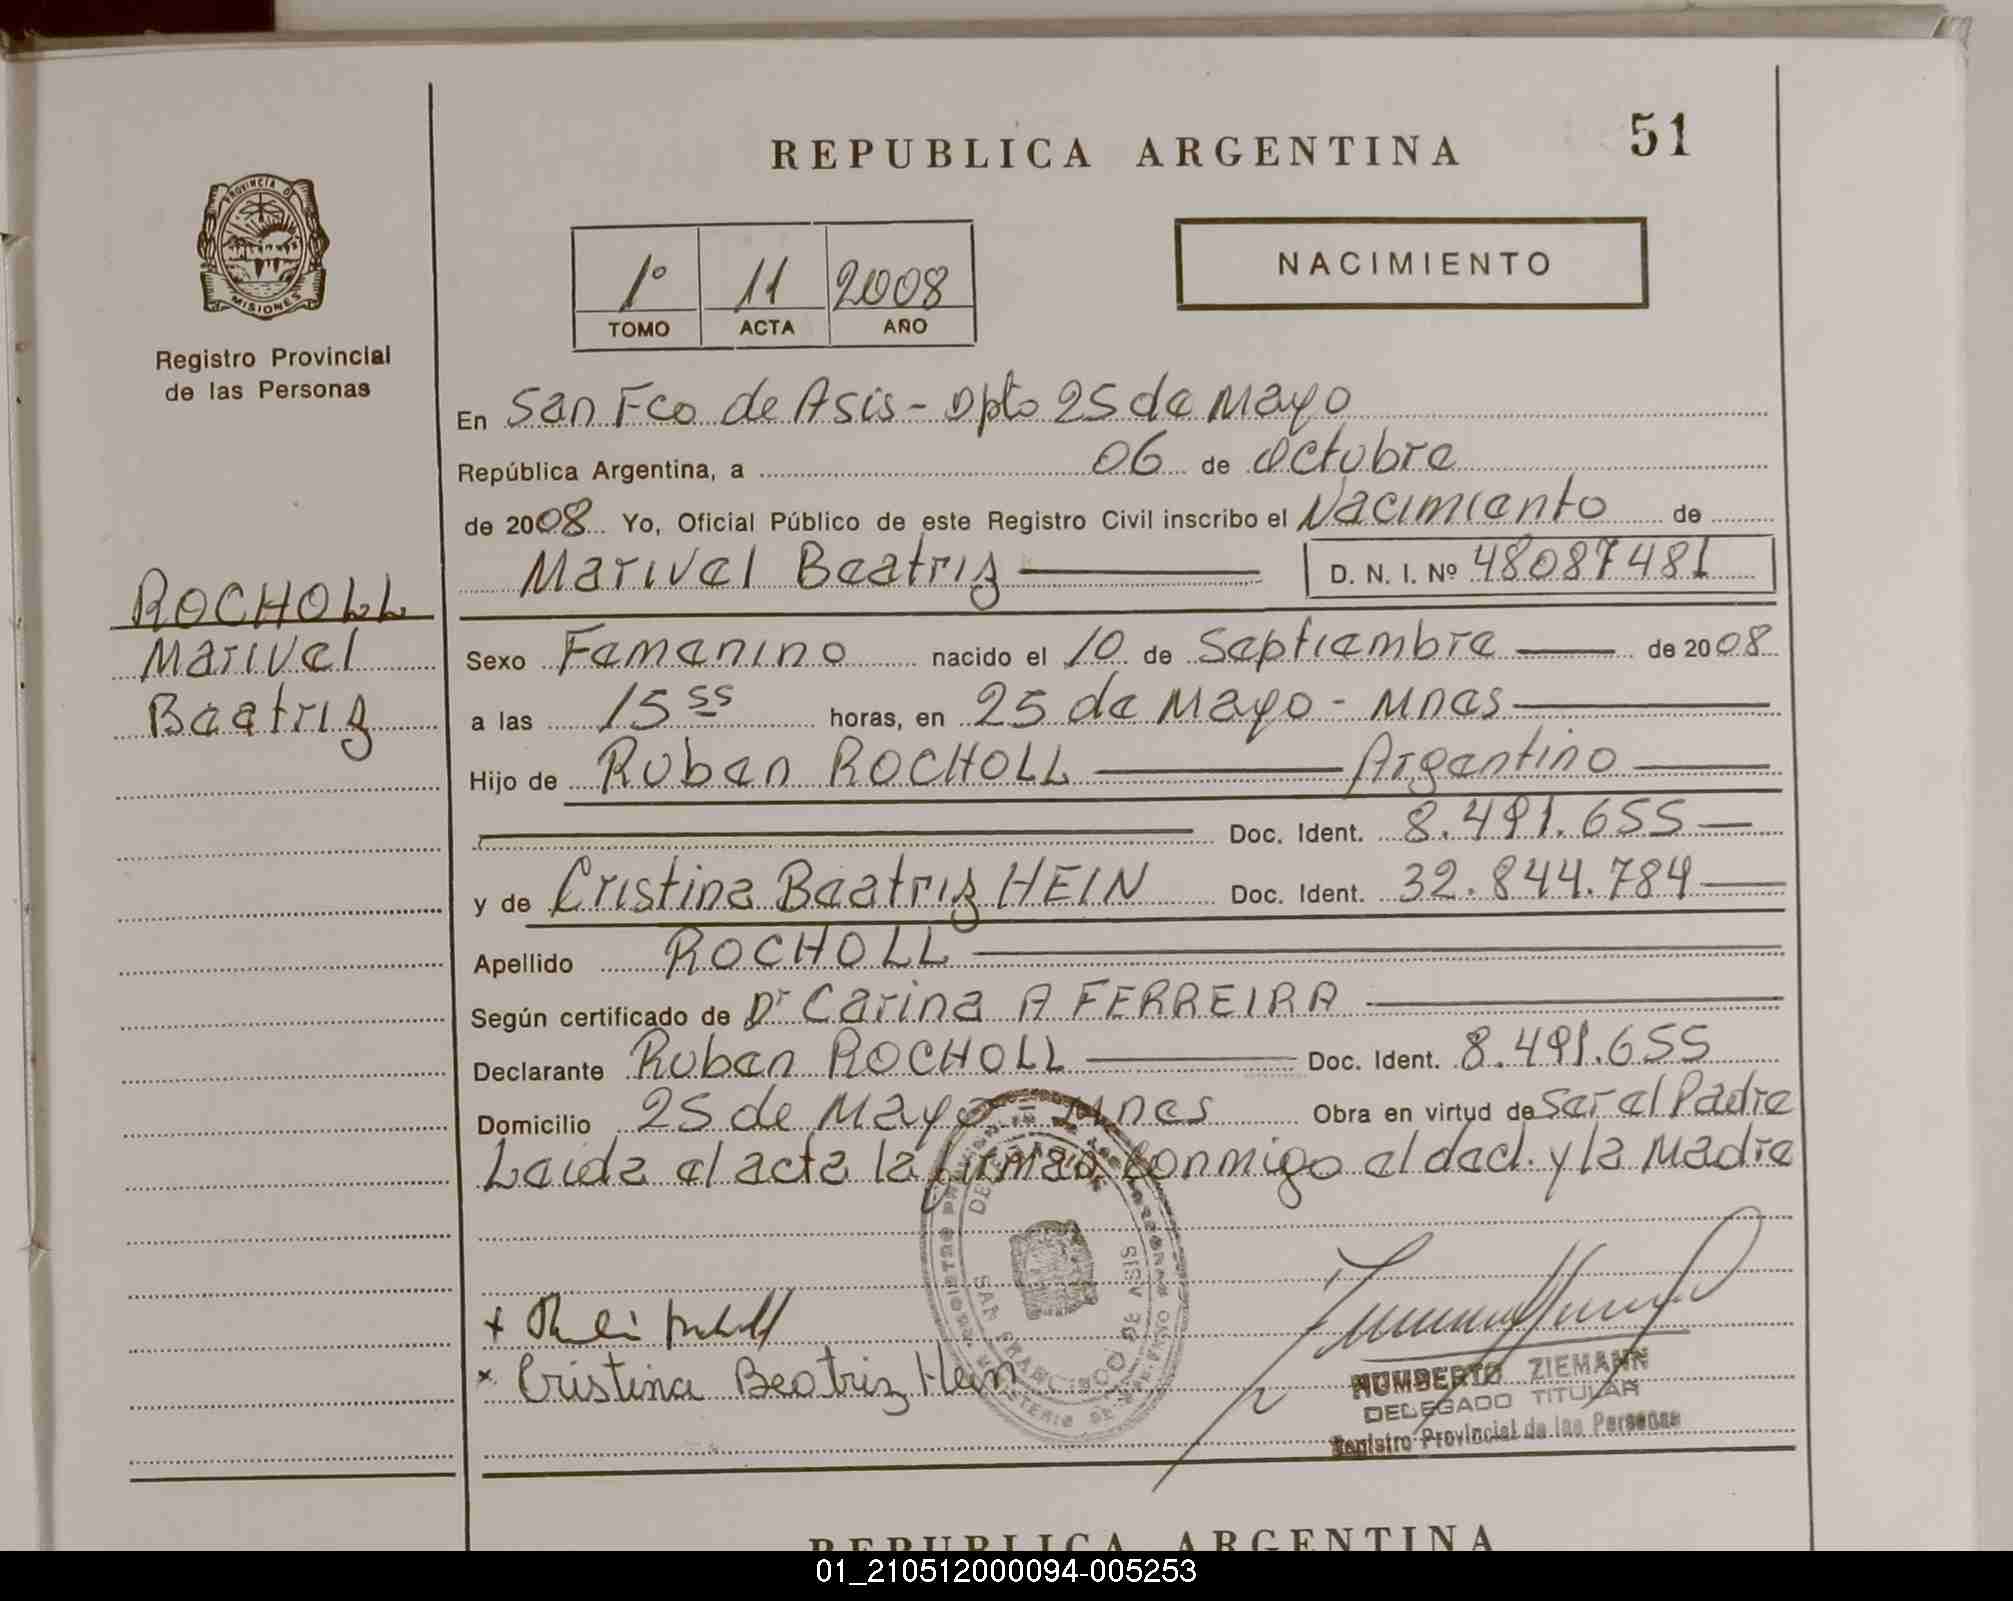 REPUBLICA ARGENTINA
51
PROVINCIA DE
MISIONES
Registro Provincial
de las Personas
1º 11 2008
TOMO ACTA AÑO
NACIMIENTO
En San Fco de Asis - Dpto 25 de Mayo
República Argentina, a 06 de Octubre
de 2008 Yo, Oficial Público de este Registro Civil inscribo el Nacimiento de
Marivel Beatriz D. N. I. Nº 48087481
ROCHOLL
Marivel
Beatriz
Sexo Femenino nacido el 10 de Septiembre de 2008
a las 15 55 horas, en 25 de Mayo - Mnes
Hijo de Ruben ROCHOLL Argentino
Doc. Ident. 8.491.655
y de Cristina Beatriz HEIN Doc. Ident. 32.844.784
Apellido ROCHOLL
Según certificado de Dr Carina A FERREIRA
Declarante Ruben ROCHOLL Doc. Ident. 8.491.655
Domicilio 25 de Mayo - Mnes Obra en virtud de Ser el Padre
Leida el acta la firman conmigo el decl. y la Madre
SAN FRANCISCO DE ASIS
+
× Cristina Beatriz Hein
HUMBERTO ZIEMANN
DELEGADO TITULAR
Registro Provincial de las Personas
REPUBLICA ARGENTINA
01_210512000094-005253